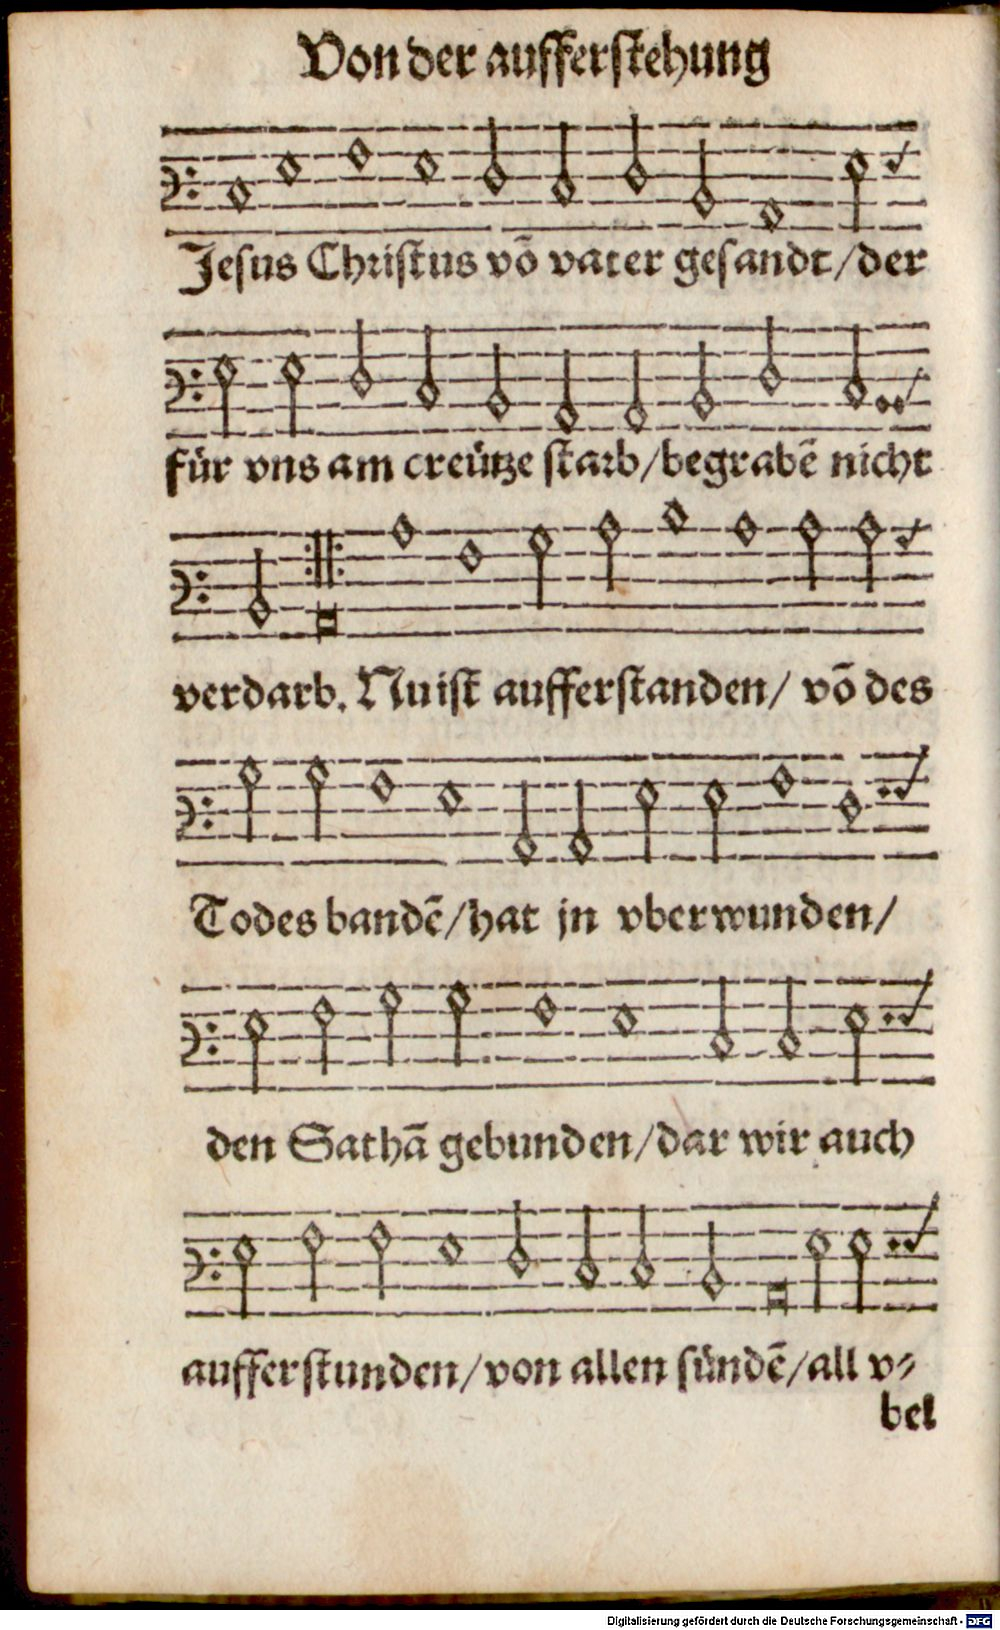 Von der aufferstehung
Jesus Christus võ vater gesandt/der
für vns am creütze starb/begrabẽ nicht
verdarb. Nu ist aufferstanden/ võ des
Todes bandẽ/hat jn vberwunden/
den Sathã gebunden/dar wir auch
aufferstunden/von allen sündẽ/all v⸗
bel
Digitalisierung gefördert durch die Deutsche Forschungsgemeinschaft - DFG